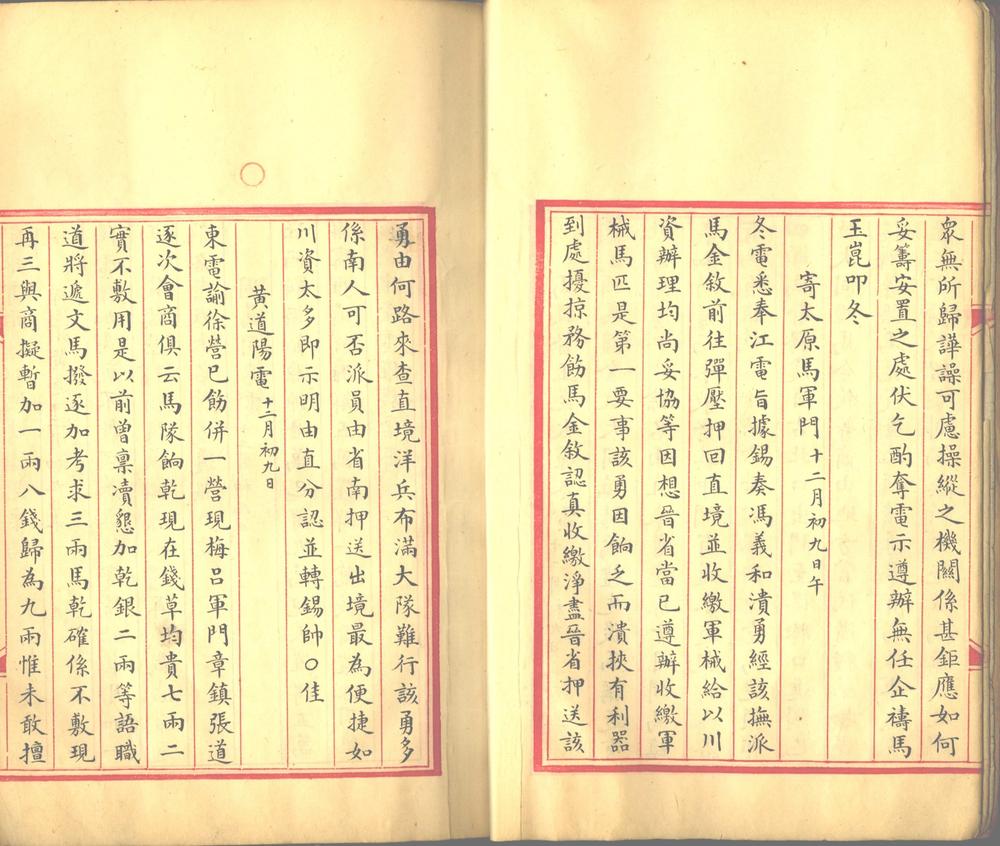 眾無所歸譁譟可慮操縱之機關係甚鉅應如何
妥籌安置之處伏乞酌奪電示遵辦無任企禱馬
玉崑叩冬
寄太原馬軍門十二月初九日午
冬電悉奉江電旨據錫奏馮義和潰勇經該撫派
馬金敘前往彈壓押回直境並收繳軍械給以川
資辦理均尚妥協等因想晉省當已遵辦收繳軍
械馬匹是第一要事該勇因餉乏而潰挾有利器
到處擾掠務飭馬金敘認真收繳淨盡晉省押送該
勇由何路來查直境洋兵布滿大隊難行該勇多
係南人可否派員由省南押送出境最為便捷如
川資太多即示明由直分認並轉錫帥〇佳
黃道陽電十二月初九日
東電諭徐營已飭併一營現梅呂軍門章鎮張道
逐次會商俱云馬隊餉乾現在錢草均貴七兩二
實不敷用是以前曾稟瀆懇加乾銀二兩等語職
道將遞文馬撥逐加考求三兩馬乾確係不敷現
再三與商擬暫加一兩八錢歸為九兩惟未敢擅